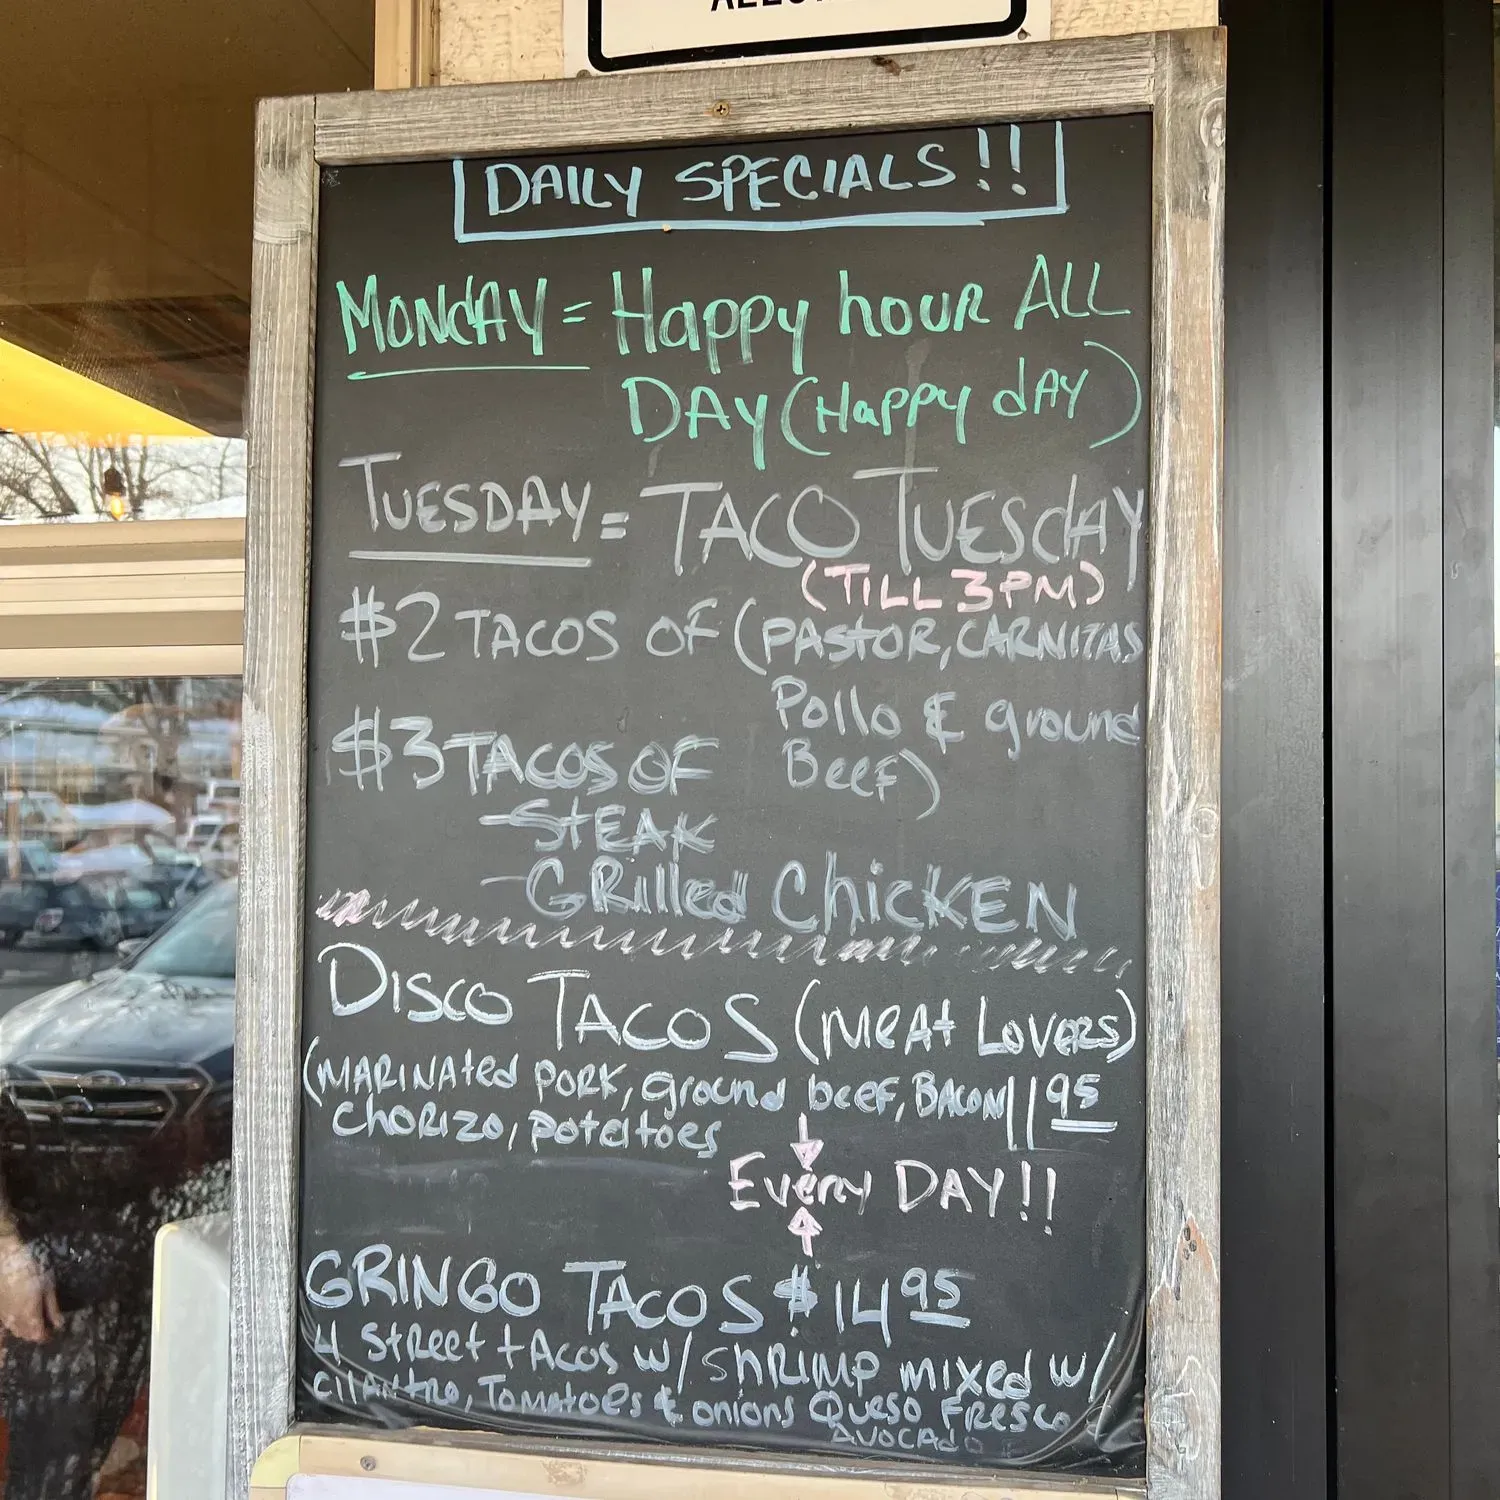 DAILY SPECIALS!!
MONdAY = Happy hour ALL
DAY (Happy dAY)
TUESDAY = TACO TUESdAY
(TILL 3PM)
$2 TACOS OF (PAStOR, CARNITAS
Pollo & ground
Beef)
$3 TACOS OF
-StEAK
-GRilled ChicKEN
DISCO TACOS (MEAt LOVERS)
(MARINAted PORK, ground beef, BACON 11 95
ChORIZO, potatoes
Every DAY!!
GRINGO TACOS $14 95
4 StREEt tACOS w/ ShRIMP mixed w/
CILANTRO, TOMATOES & onions QUESO FRESCO
AVOCADO